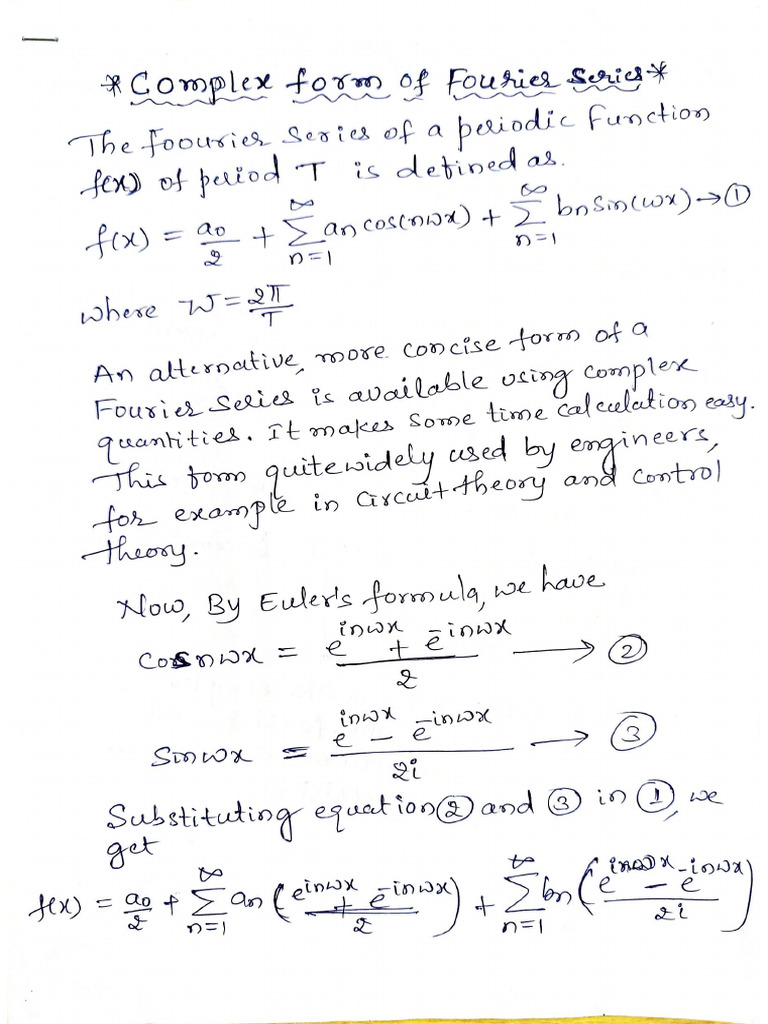 * Complex form of Fourier Series *
The foourier Series of a periodic Function
f(x) of period T is defined as.
f(x) = a0/2 + ∑_{n=1}^{∞} an cos(nωx) + ∑_{n=1}^{∞} bn Sin(ωx) → ①
where W = 2π/T
An alternative, more concise form of a
Fourier Series is available using complex
quantities. It makes Some time calculation easy.
This form quite widely used by engineers,
for example in Circuit theory and control
theory.
Now, By Euler's formula, we have
Cosnωx = (e^{inωx} + e^{-inωx})/2 → ②
Sinωx = (e^{inωx} - e^{-inωx})/2i → ③
Substituting equation ② and ③ in ①, we
get
f(x) = a0/2 + ∑_{n=1}^{∞} an ((e^{inωx} + e^{-inωx})/2) + ∑_{n=1}^{∞} bn ((e^{inωx} - e^{-inωx})/2i)